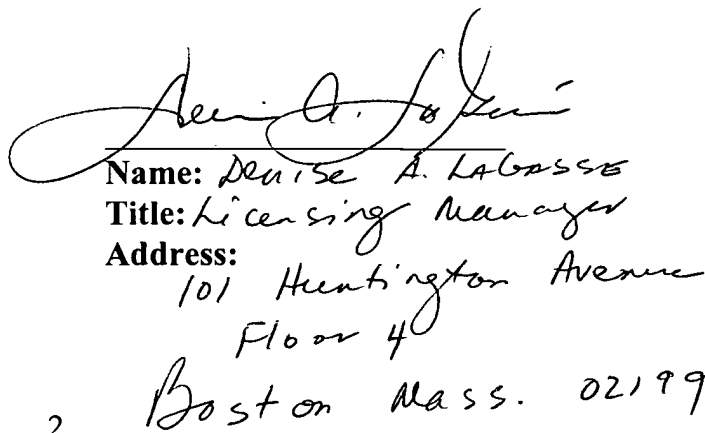 Name: Denise A. LaGasse
Title: Licensing Manager
Address:
101 Huntington Avenue
Floor 4
Boston Mass. 02199
2